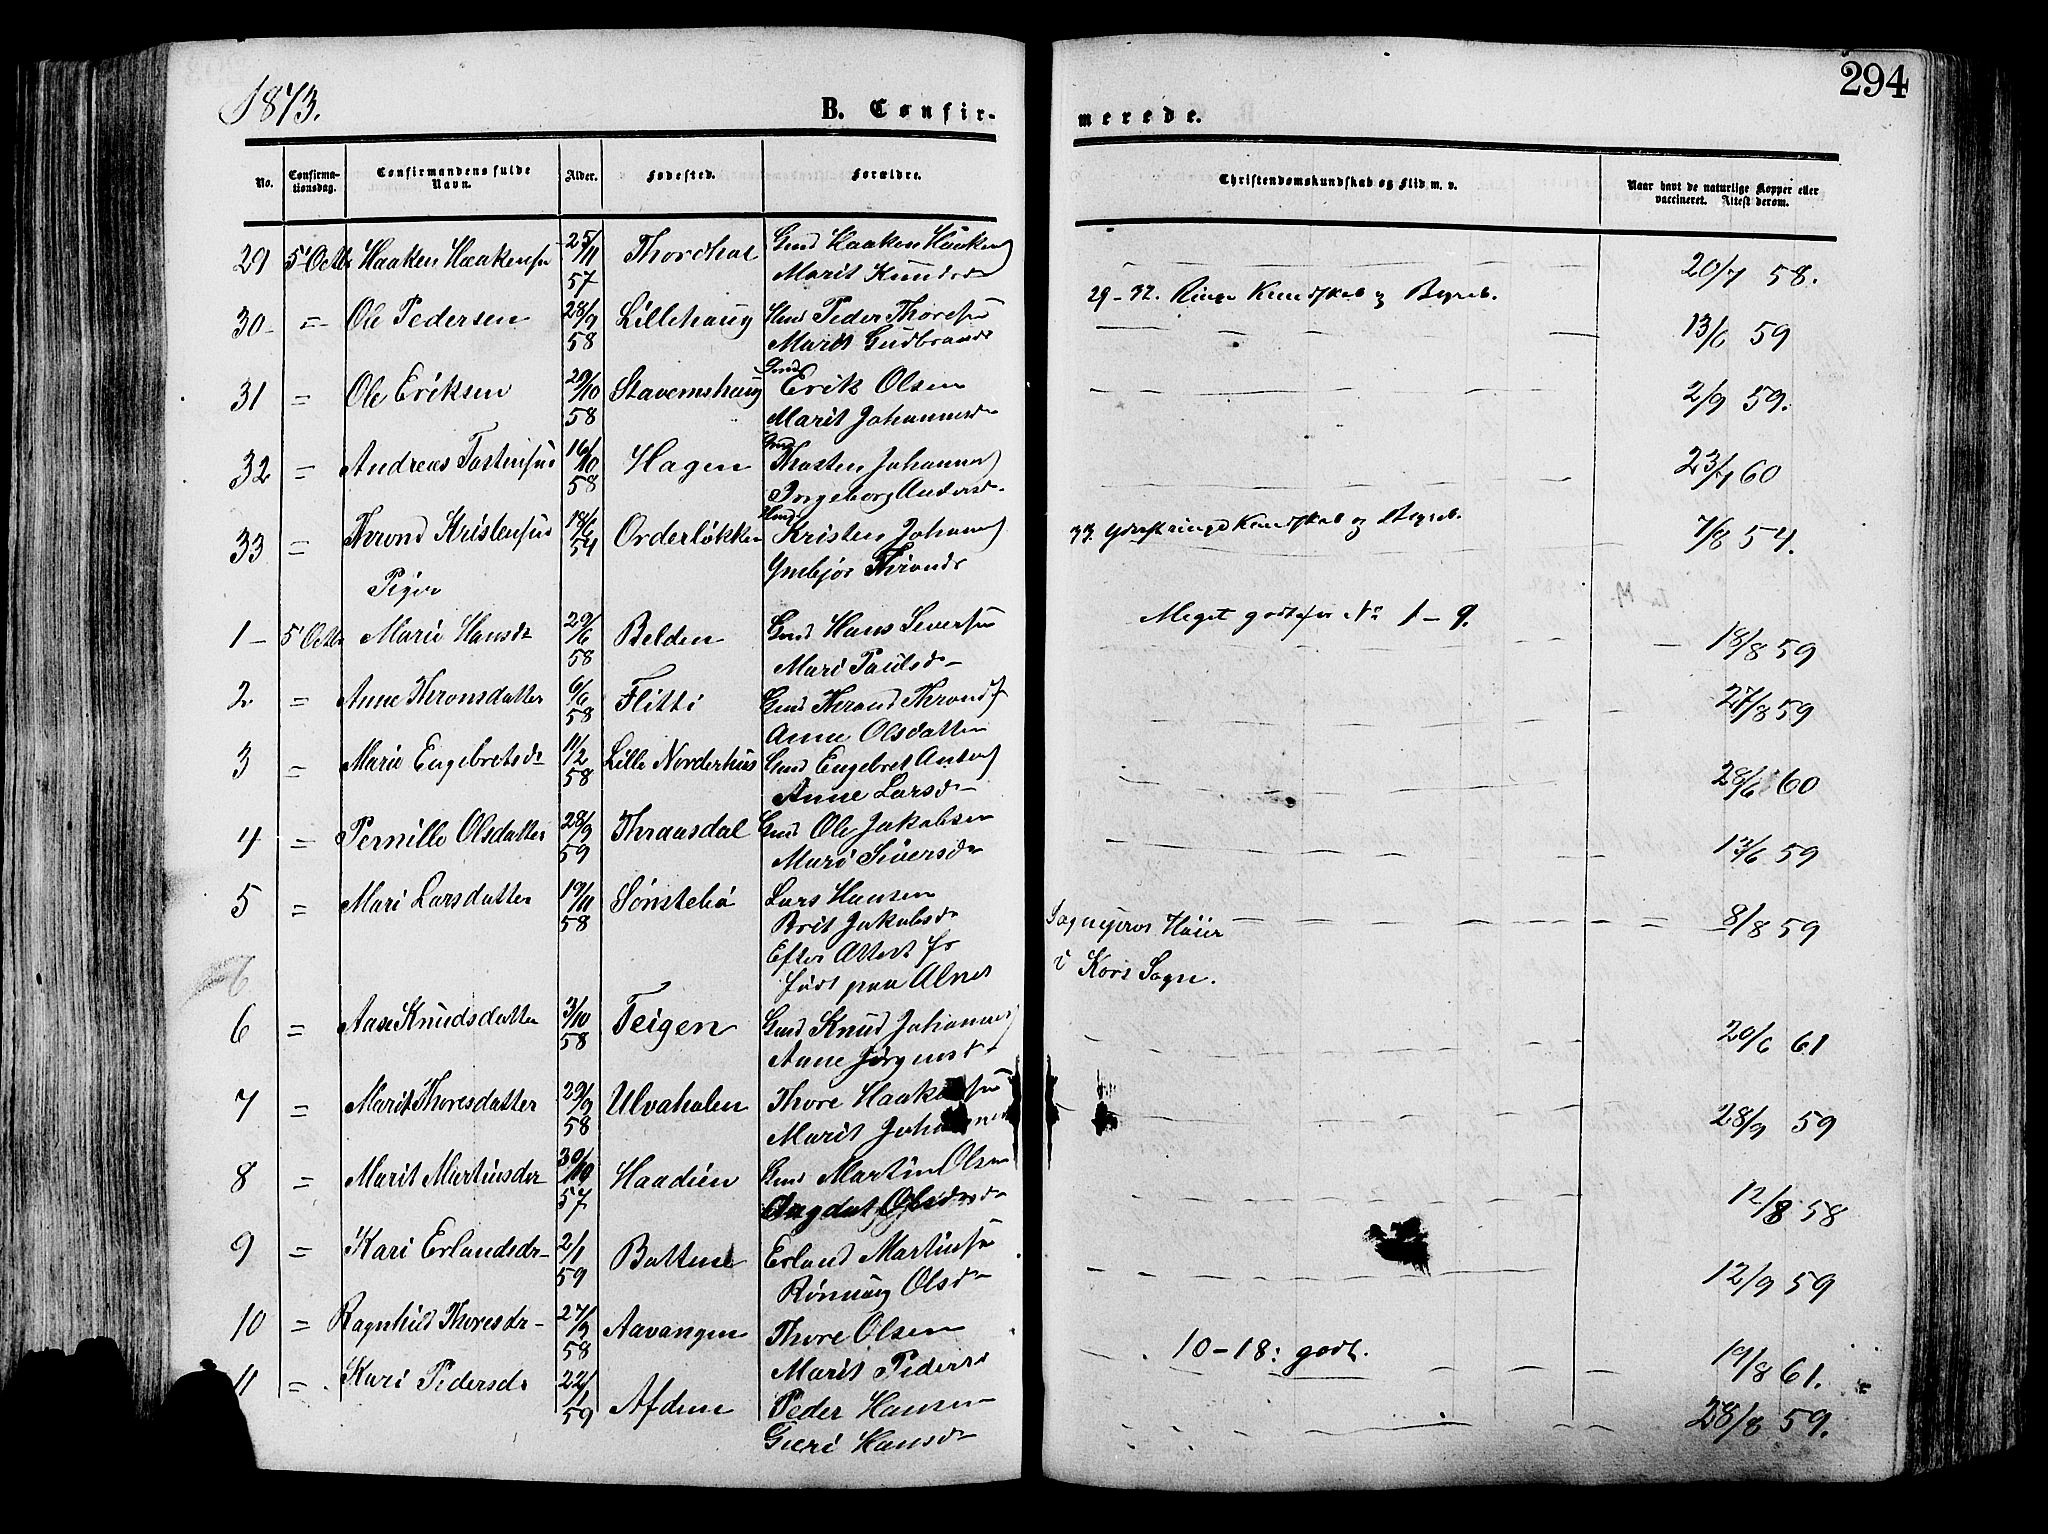 1873.
B. Confir-
merede.
294
No.
Confirma-
tionsdag.
Confirmandens fulde
Navn.
Alder.
Fødested.
Forældre.
Christendomskundskab og Flid m. v.
Naar havt de naturlige Kopper eller
vaccineret. Attest derom.
29 5 Octbr Haaken Haakensen 25/11 57 Thordhal Gmd Haaken Haakens
Marit Knudsd 20/7 58.
29-32. Ringe Kundskab og Begreb.
30 = Ole Pedersen 28/9 58 Lillehaug Peder Thoresen
Marit Gudbrands 13/6 59
31 = Ole Eriksen 29/10 58 Stavemshaug Gmd Erik Olsen
Marit Johannesd 2/9 59.
32 = Andreas Tostensen 16/10 58 Hagen Gmd Thosten Johannes
Ingeborg Andersd 23/7 60
33 = Thrond Kristensen 18/6 54 Orderløkken Kristen Johanns
Throndsd
33. Yderst ringe Kundskab og Begreb. 7/8 54.
Piger
Meget godt for No 1-9.
1 5 Octbr Mari Hansdr 29/6 58 Belden Gmd Hans Siversen
Mari Paulsd 18/8 59
2 = Anne Thronsdatter 6/6 58 Flitti Gmd Thrond Thronds
Anne Olsdatter 27/8 59
3 = Mari Engebretsdr 11/2 58 Lille Norderhus Gmd Engebret Anders
Anne Larsd 28/6 60
4 = Pernille Olsdatter 28/9 59 Thraasdal Gmd Ole Jakobsen
Mari Siversdr 13/6 59
5 = Mari Larsdatter 19/11 58 Sønstebø Lars Hansen
Brit Jakobsdr
Efter Attest fr
født paa Alnes
Høier 8/8 59
i Kors Sogn.
6 = Aase Knudsdatter 3/10 58 Teigen Gmd Knud Johannes
Anne Jørgensd 20/6 61
7 = Marit Thoresdatter 29/9 58 Ulvahalen Thore Haakensen
Marit 28/9 59
8 = Marit Martinsdr 30/10 57 Haadien Gmd Martin Olsen
12/8 58
9 = Kari Erlandsdr 2/1 59 Battne Erland Martinsen
Rønnaug Olsd 12/9 59
10 = Ragnhild Thoresdr 27/9 58 Aavangen Thore Olsen
Marit Peders 19/8 61.
10-18: godt.
11 = Kari Pedersdr 22/1 59 Afdem Peder Hansen
Hansdr 28/8 59.